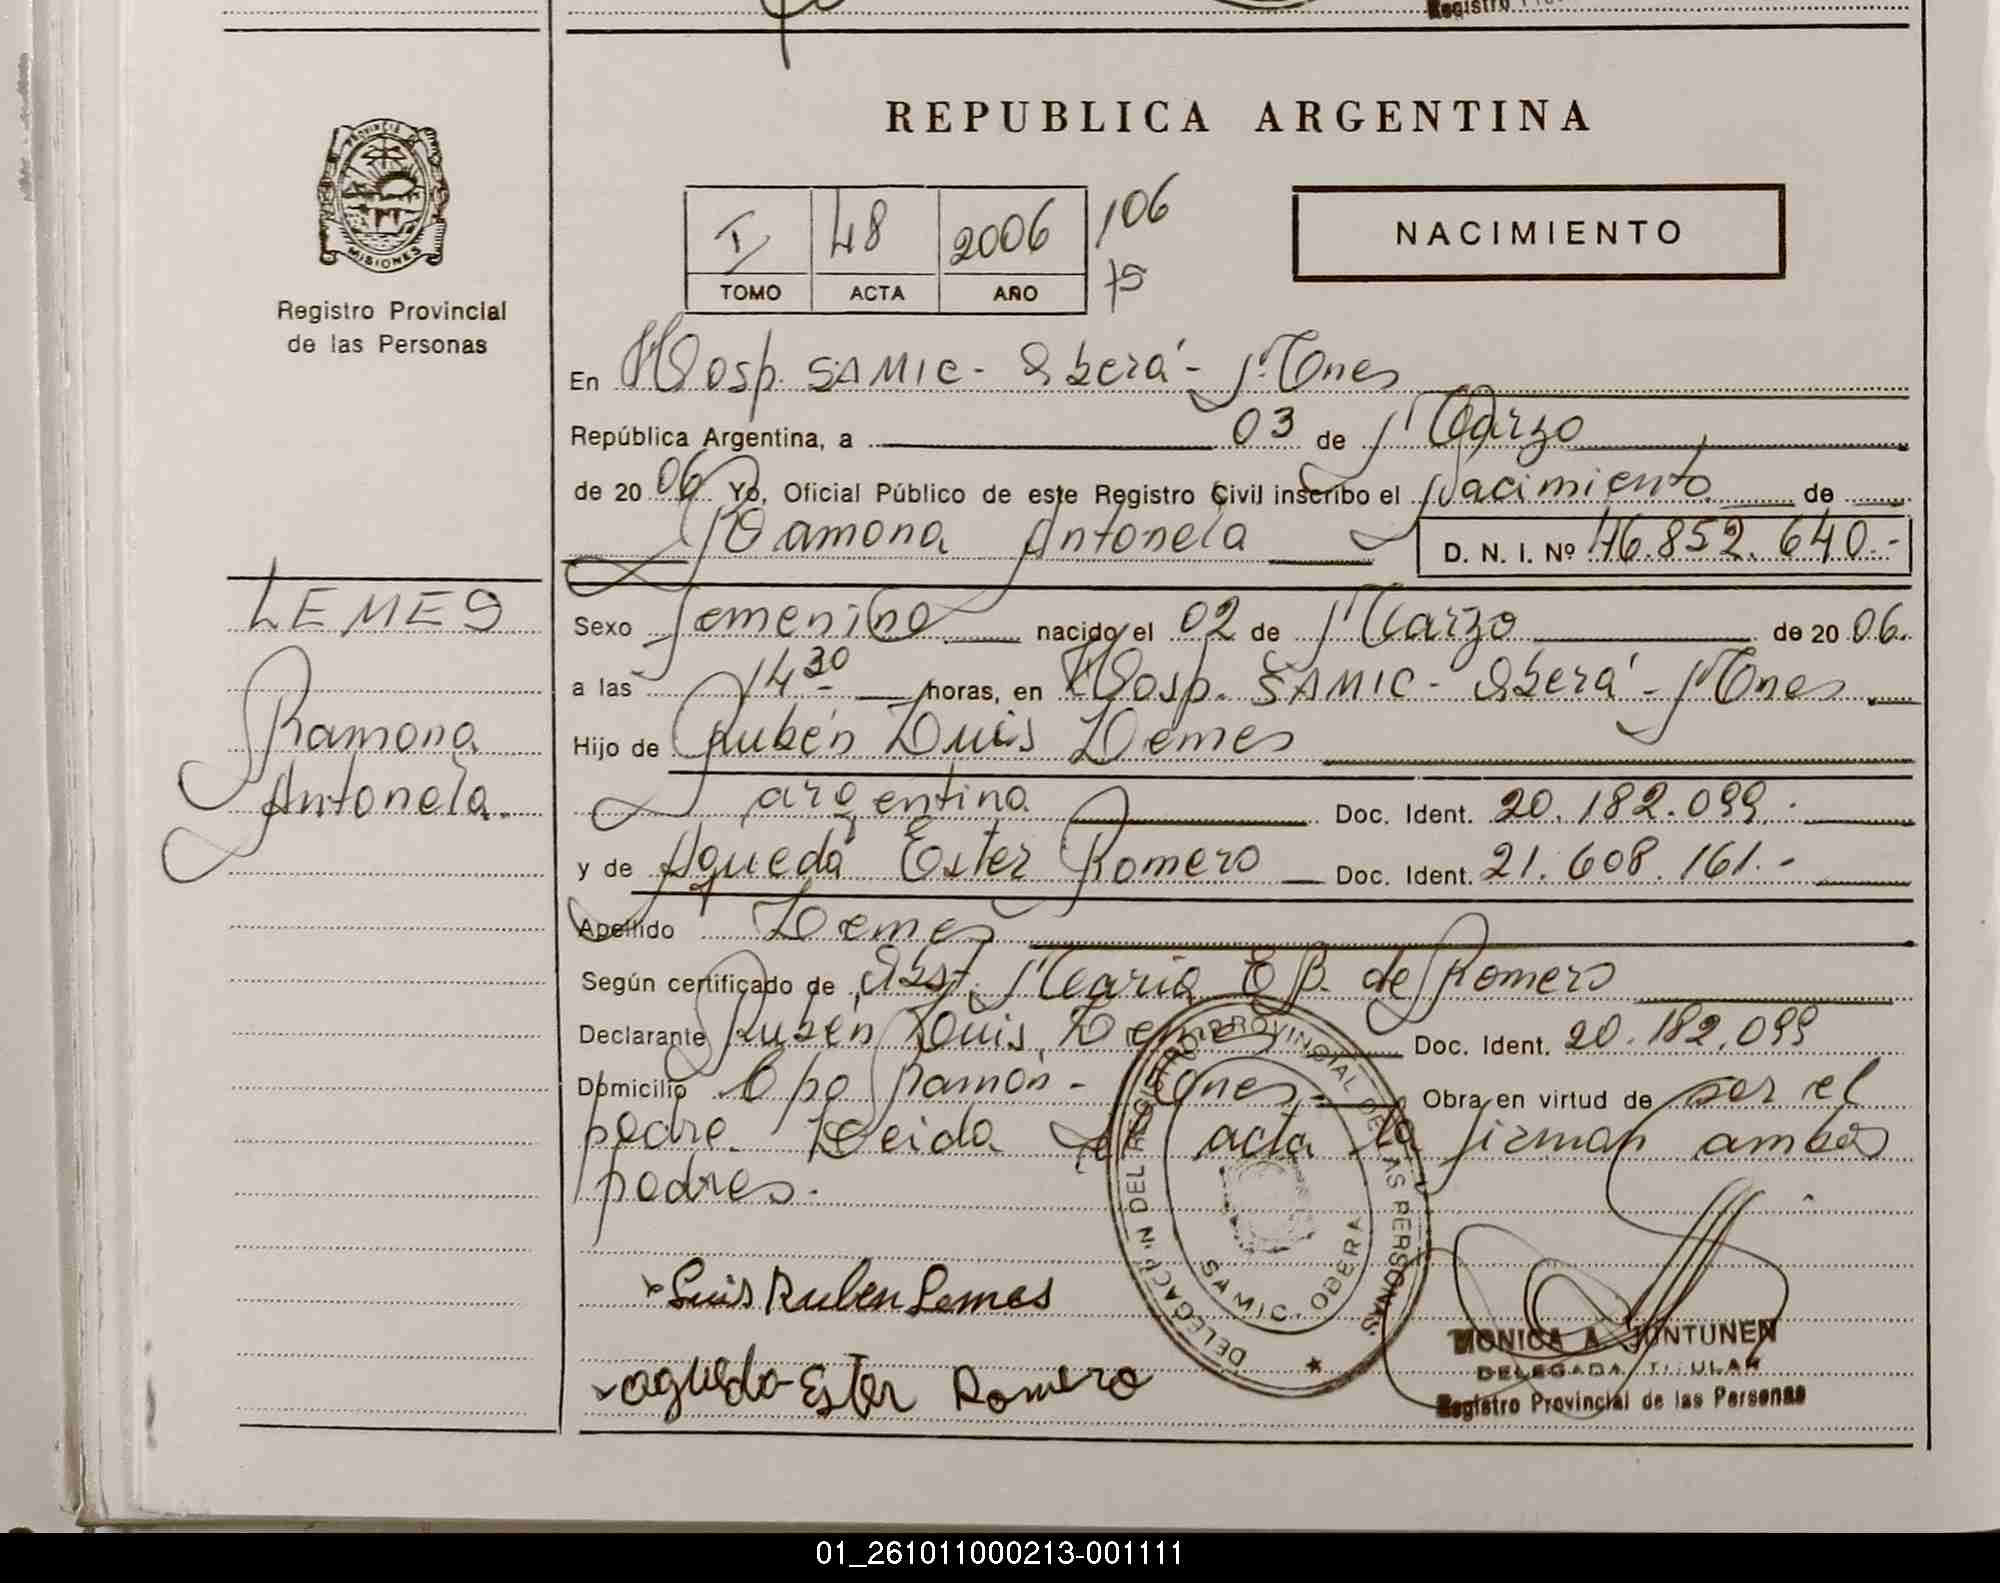 Registro Pro
REPUBLICA ARGENTINA
PROVINCIA DE
MISIONES
Registro Provincial
de las Personas
I 48 2006 106
TOMO ACTA AÑO
NACIMIENTO
En Hosp. SAMIC - Oberá - Mnes
República Argentina, a 03 de Marzo
de 2006 Yo, Oficial Público de este Registro Civil inscribo el Nacimiento de
Ramona Antonela D. N. I. Nº 46.852.640.-
LEMES
Ramona
Antonela.
Sexo femenino nacido el 02 de Marzo de 2006.
a las 14 30 horas, en Hosp. SAMIC - Oberá - Mnes
Hijo de Rubén Luis Lemes
argentina Doc. Ident. 20.182.099.
y de Agueda Ester Romero Doc. Ident. 21.608.161.-
Apellido Lemes
Según certificado de Obst. Maria E B. de Romero
Declarante Rubén Luis Lemes Doc. Ident. 20.182.099
Domicilio Cpo Ramón - Mnes. Obra en virtud de ser el
padre. Leida el acta la firman ambos
padres.
DELEGACION DEL REGISTRO PROVINCIAL DE LAS PERSONAS
SAMIC - OBERA
Luis Ruben Lemes
agueda Ester Romero
MONICA A. JUNTUNEN
DELEGADA TITULAR
Registro Provincial de las Personas
01_261011000213-001111